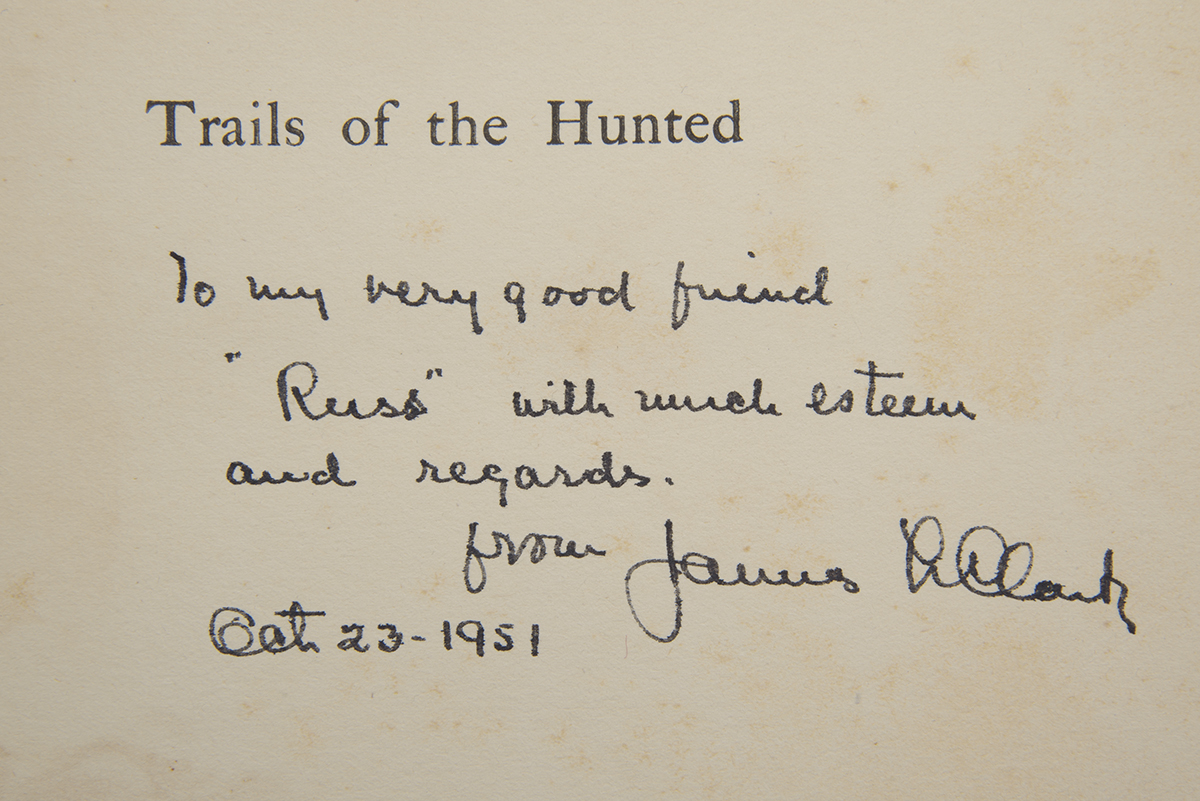 Trails of the Hunted
To my very good friend
"Russ" with much esteem
and regards.
from James L Clark
Oct 23-1951